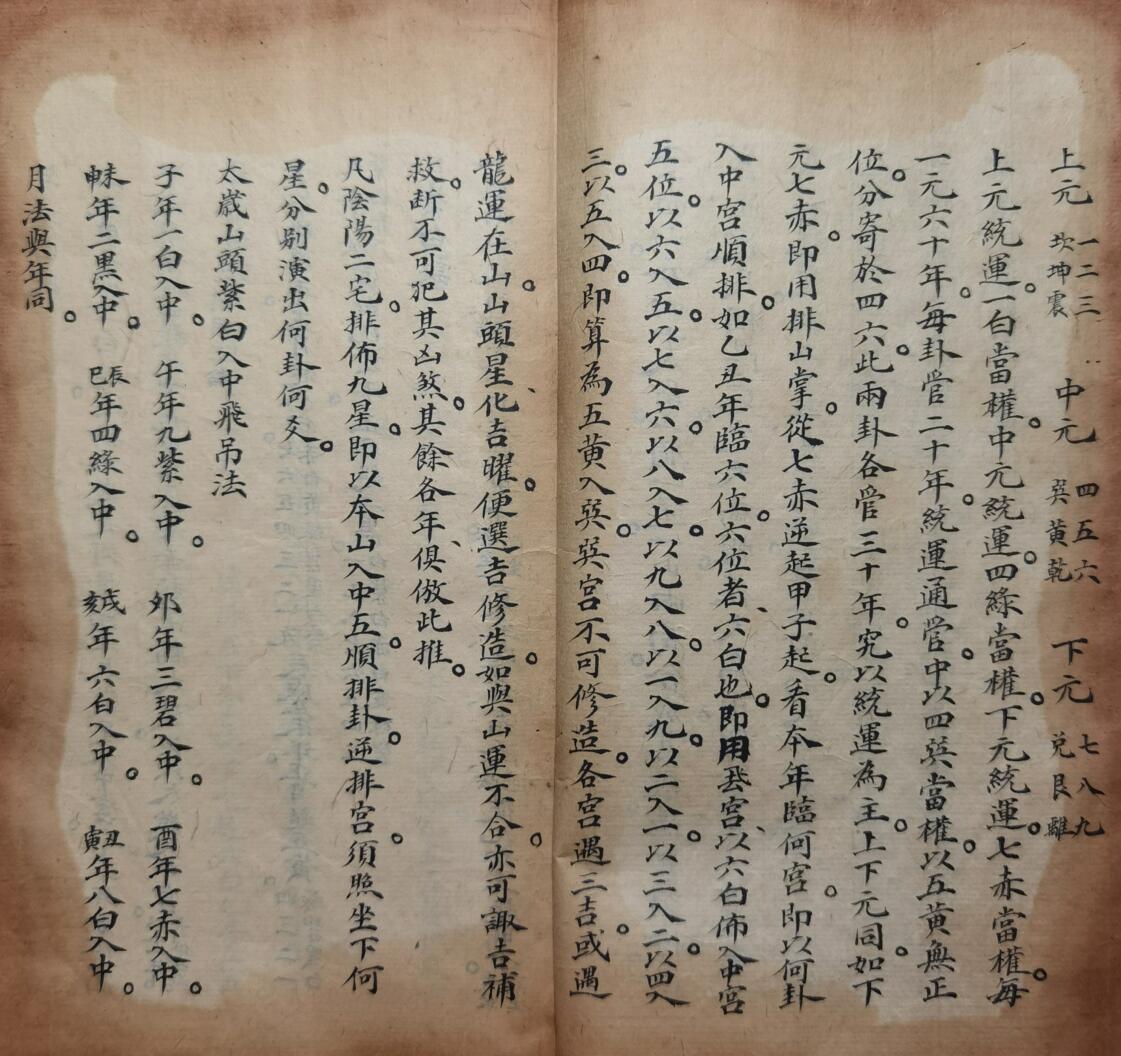 上元 一坎 二坤 三震 中元 四巽 五黄 六乾 下元 七兌 八艮 九離
上元統運。一白當權。中元統運。四綠當權。下元統運。七赤當權。每
一元六十年。每卦管二十年。統運通管。中以四巽當權。以五黄無正
位。分寄於四六。此兩卦各管三十年。究以統運為主。上下元同。如下
元七赤。即用排山掌。從七赤逆起甲子起。看本年臨何宮。即以何卦
入中宮順排。如乙丑年臨六位。六位者、六白也。即用飛宮、以六白佈入中宮
五位。以六入五。以七入六。以八入七。以九入八。以一入九。以二入一。以三入二。以四入
三。以五入四。即算為五黄入巽。巽宮不可修造。各宮遇三吉。或遇
龍運在山。山頭星化、吉曜。便選吉修造。如與山運不合。亦可諏吉補
救。斷不可犯其凶煞。其餘各年、俱倣此推。
凡陰陽二宅。排佈九星。即以本山入中五。順排卦。逆排宮。須照坐下何
星。分别演出何卦何爻。
太歲山頭紫白入中飛吊法
子年一白入中。 午年九紫入中。 卯年三碧入中。 酉年七赤入中。
申未年二黑入中。 巳辰年四綠入中。 亥戌年六白入中。 寅丑年八白入中。
月法與年同。